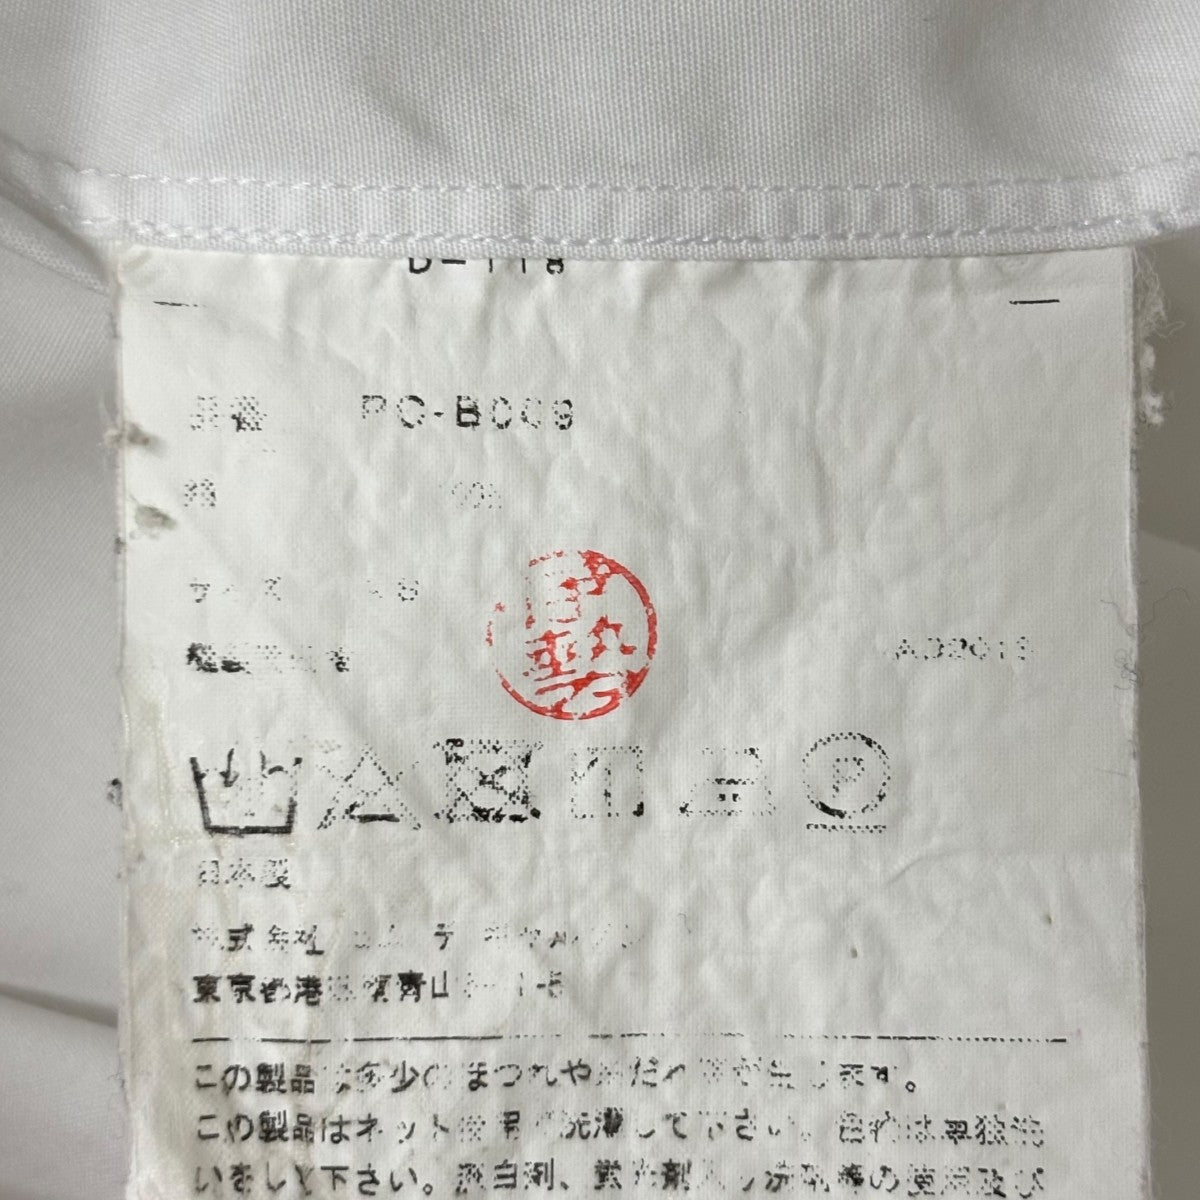 D-118
品番 PC-B009
綿 100%
サイズ
AD2019
P
日本製
株式会社 コム デ ギャルソン
東京都港区南青山5-1-5
この製品は多少のまつれや糸だれ等が生じます。
この製品はネット使用で洗濯して下さい。色物は単独洗
いをして下さい。漂白剤、蛍光剤入り洗剤等の使用及び